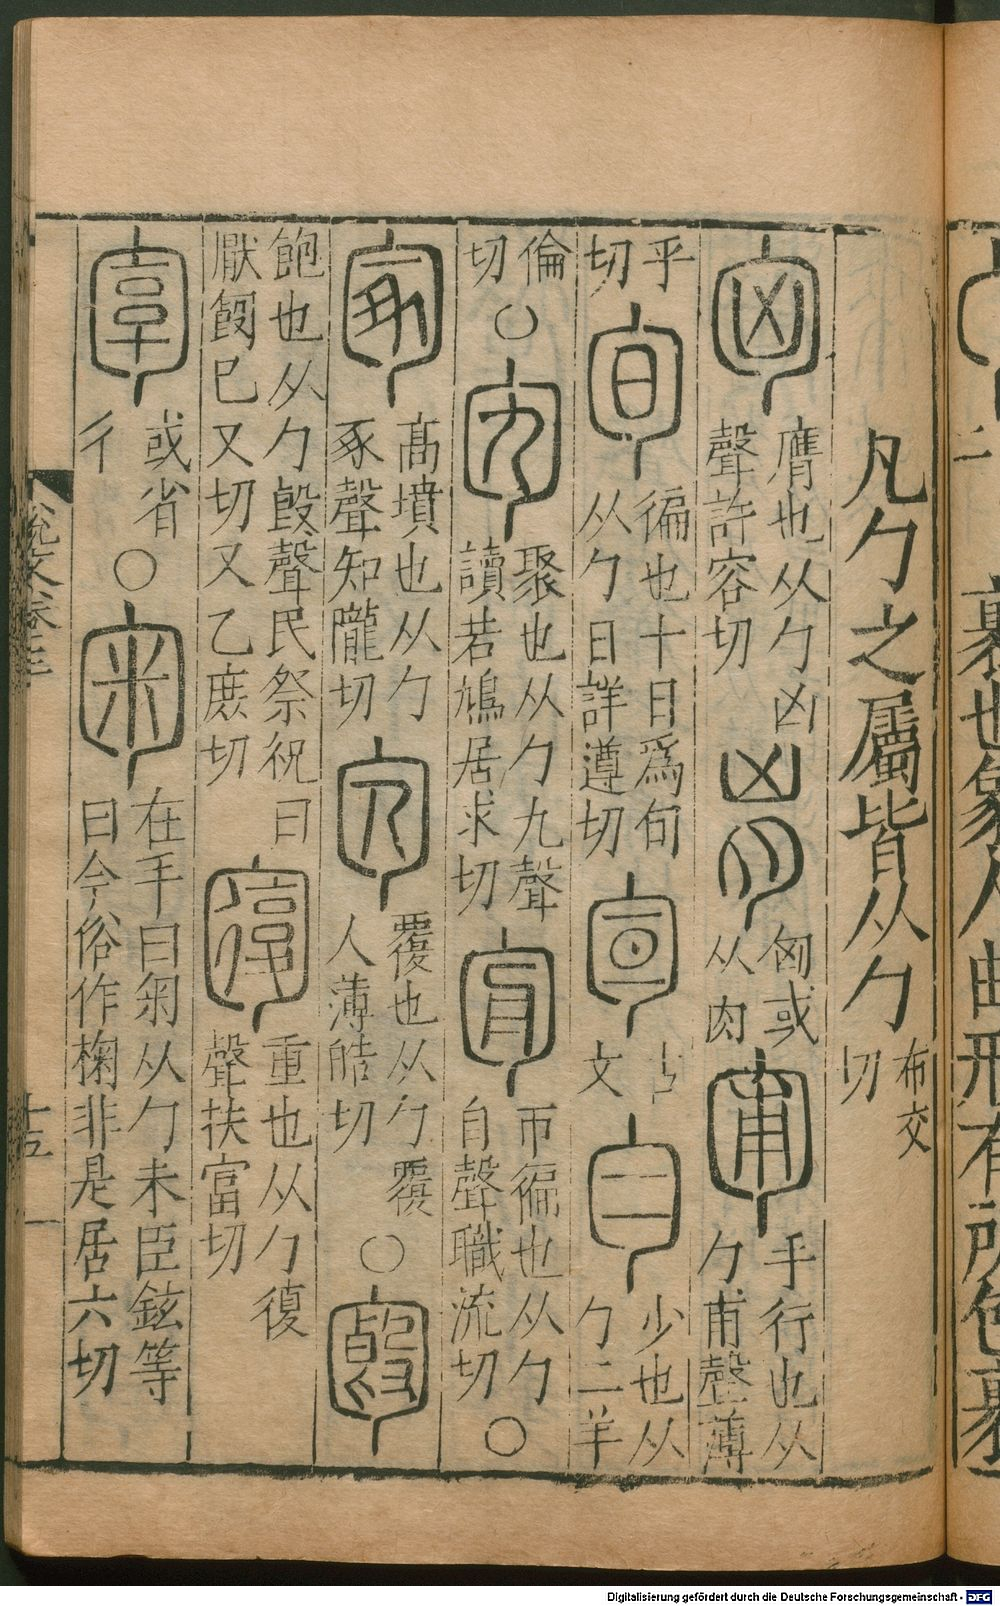 裹也象人曲形有所包裹
凡勹之屬皆从勹布交切
膺也从勹凶聲許容切
匈或从肉
手行也从勹甫聲薄乎切
徧也十日爲旬从勹日詳遵切
古文
少也从勹二羊倫切〇
聚也从勹九聲讀若鳩居求切
帀徧也从勹𦣹聲職流切〇
髙墳也从勹豕聲知隴切
覆也从勹覆人薄皓切〇
飽也从勹𣪘聲民祭祝曰厭𩚬已又切又乙庶切
重也从勹復聲扶富切
或省彳〇
在手曰匊从勹米臣鉉等曰今俗作掬非是居六切
說文卷
十五
Digitalisierung gefördert durch die Deutsche Forschungsgemeinschaft - DFG